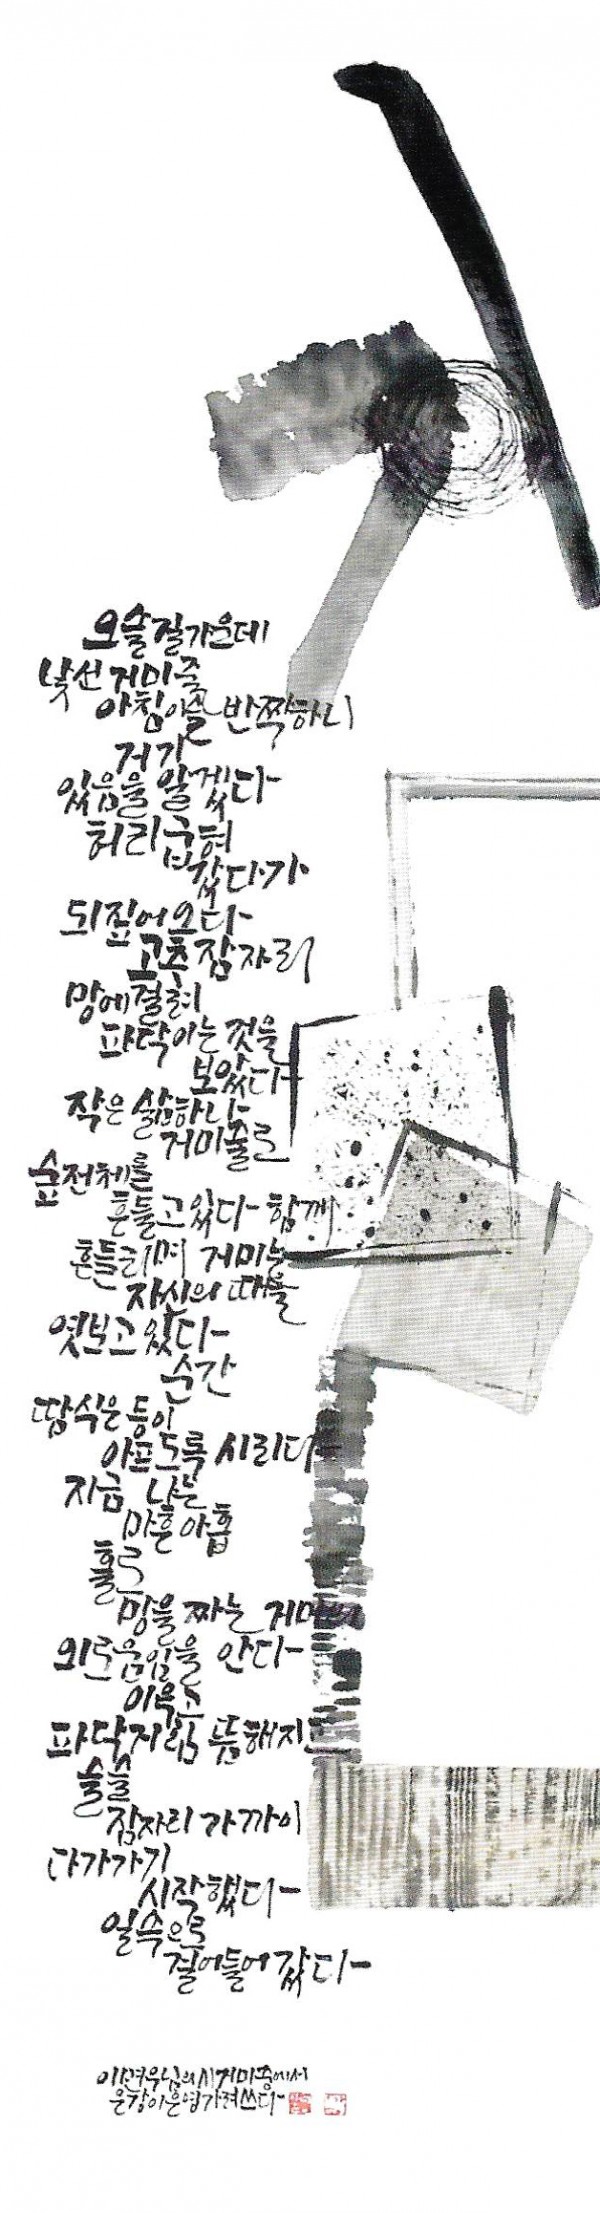 오슬길 가운데
낯선 거미줄
아침이슬 반짝하니
거기
있음을 알겠다
허리 굽혀
갔다가
되짚어오다
고추잠자리
망에 걸려
파닥이는 것을
보았다
작은 삶 하나
거미줄로
숲 전체를
흔들고 있다 함께
흔들리며 거미는
자신의 때를
엿보고 있다
순간
땀 식은 등이
아프도록 시리다
지금 나는
마흔아홉
홀로
망을 짜는 거미의
외로움을 안다
이윽고
파닥거림 뜸해지고
슬슬
잠자리 가까이
다가가기
시작했다
일수으로
걸어들어갔다
이면우님의 시 거미 중에서
은창 이은영 가려쓰다